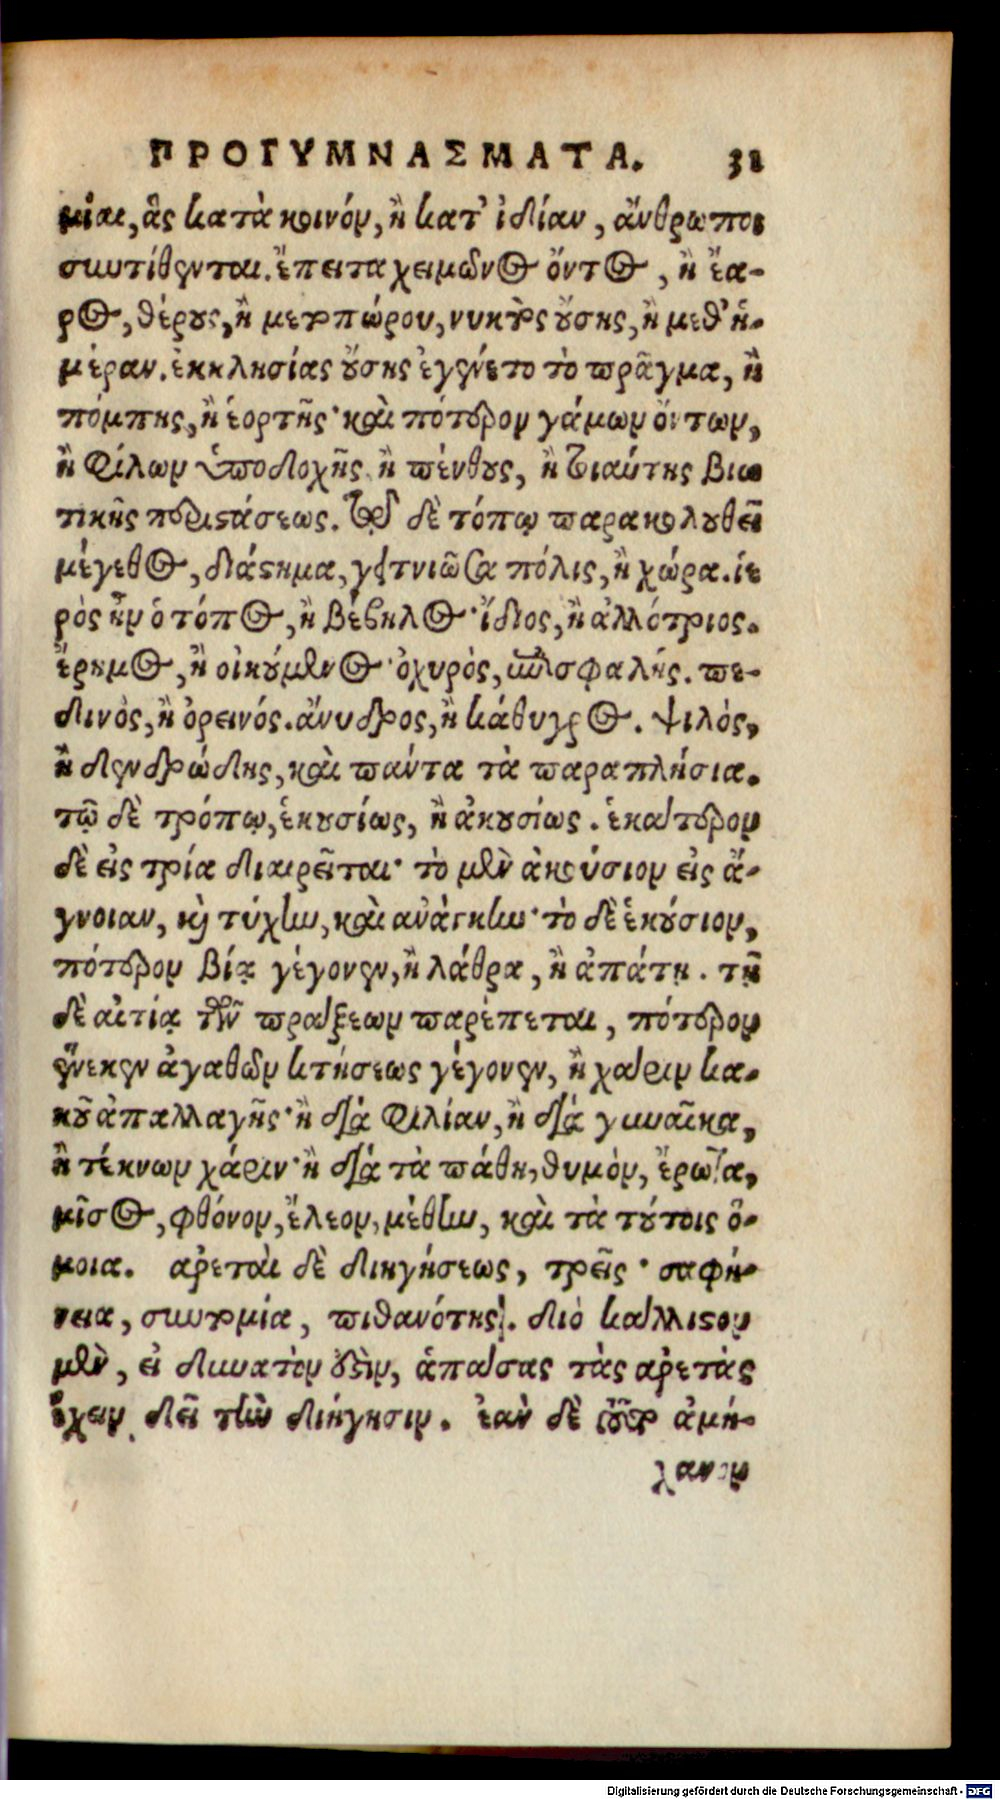 ΠΡΟΓΥΜΝΑΣΜΑΤΑ. 31
μίαι, ἃς κατὰ κοινόν, ἢ κατ' ἰδίαν, ἄνθρωποι
συντίθενται. ἔπειτα χειμῶνος ὄντος, ἢ ἔα-
ρος, θέρους, ἢ μετοπώρου, νυκτὸς οὔσης, ἢ μεθ' ἡ-
μέραν. ἐκκλησίας οὔσης ἐγένετο τὸ πρᾶγμα, ἢ
πόμπης, ἢ ἑορτῆς· καὶ πότερον γάμων ὄντων,
ἢ φίλων ὑποδοχῆς ἢ πένθους, ἢ τοιαύτης βιω
τικῆς περιστάσεως. τῷ δὲ τόπῳ παρακολουθεῖ
μέγεθος, διάστημα, γειτνιῶσα πόλις, ἢ χώρα. ἱε
ρὸς ἦν ὁ τόπος, ἢ βέβηλος· ἴδιος, ἢ ἀλλότριος.
ἔρημος, ἢ οἰκούμενος· ὀχυρὸς, ἐπισφαλής. πε-
δινὸς, ἢ ὀρεινός. ἄνυδρος, ἢ κάθυγρος. ψιλὸς,
ἢ δενδρώδης, καὶ πάντα τὰ παραπλήσια.
τῷ δὲ τρόπῳ, ἑκουσίως, ἢ ἀκουσίως. ἑκάτερον
δὲ εἰς τρία διαιρεῖται· τὸ μὲν ἀκούσιον εἰς ἄ-
γνοιαν, καὶ τύχην, καὶ ἀνάγκην· τὸ δὲ ἑκούσιον,
πότερον βίᾳ γέγονεν, ἢ λάθρα, ἢ ἀπάτῃ. τῇ
δὲ αἰτίᾳ τῶν πράξεων παρέπεται, πότερον
ἕνεκεν ἀγαθῶν κτήσεως γέγονεν, ἢ χάριν κα-
κοῦ ἀπαλλαγῆς· ἢ διὰ φιλίαν, ἢ διὰ γυναῖκα,
ἢ τέκνων χάριν· ἢ διὰ τὰ πάθη, θυμὸν, ἔρωτα,
μῖσος, φθόνον, ἔλεον, μέθην, καὶ τὰ τούτοις ὅ-
μοια. ἀρεταὶ δὲ διηγήσεως, τρεῖς· σαφή-
νεια, συντομία, πιθανότης. διὸ κάλλιστον
μὲν, εἰ δυνατὸν ἐστὶν, ἁπάσας τὰς ἀρετὰς
ἔχειν δεῖ τὴν διήγησιν. ἐὰν δὲ τοῦτο ἀμή-
χανον
Digitalisierung gefördert durch die Deutsche Forschungsgemeinschaft - DFG